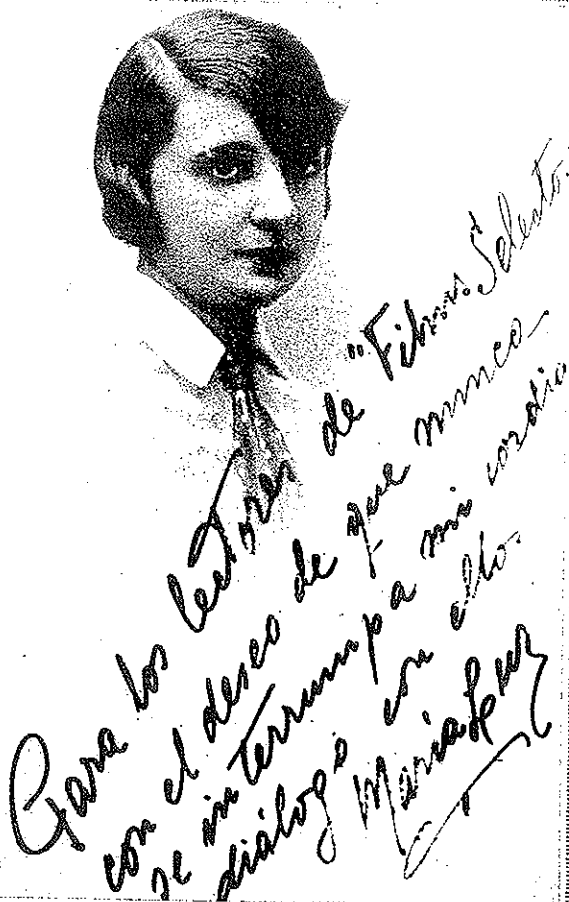 Para los lectores de "Films Selectos"
con el deseo de que nunca
se interrumpa mi cordia
diálogo con ellos.
María Luz